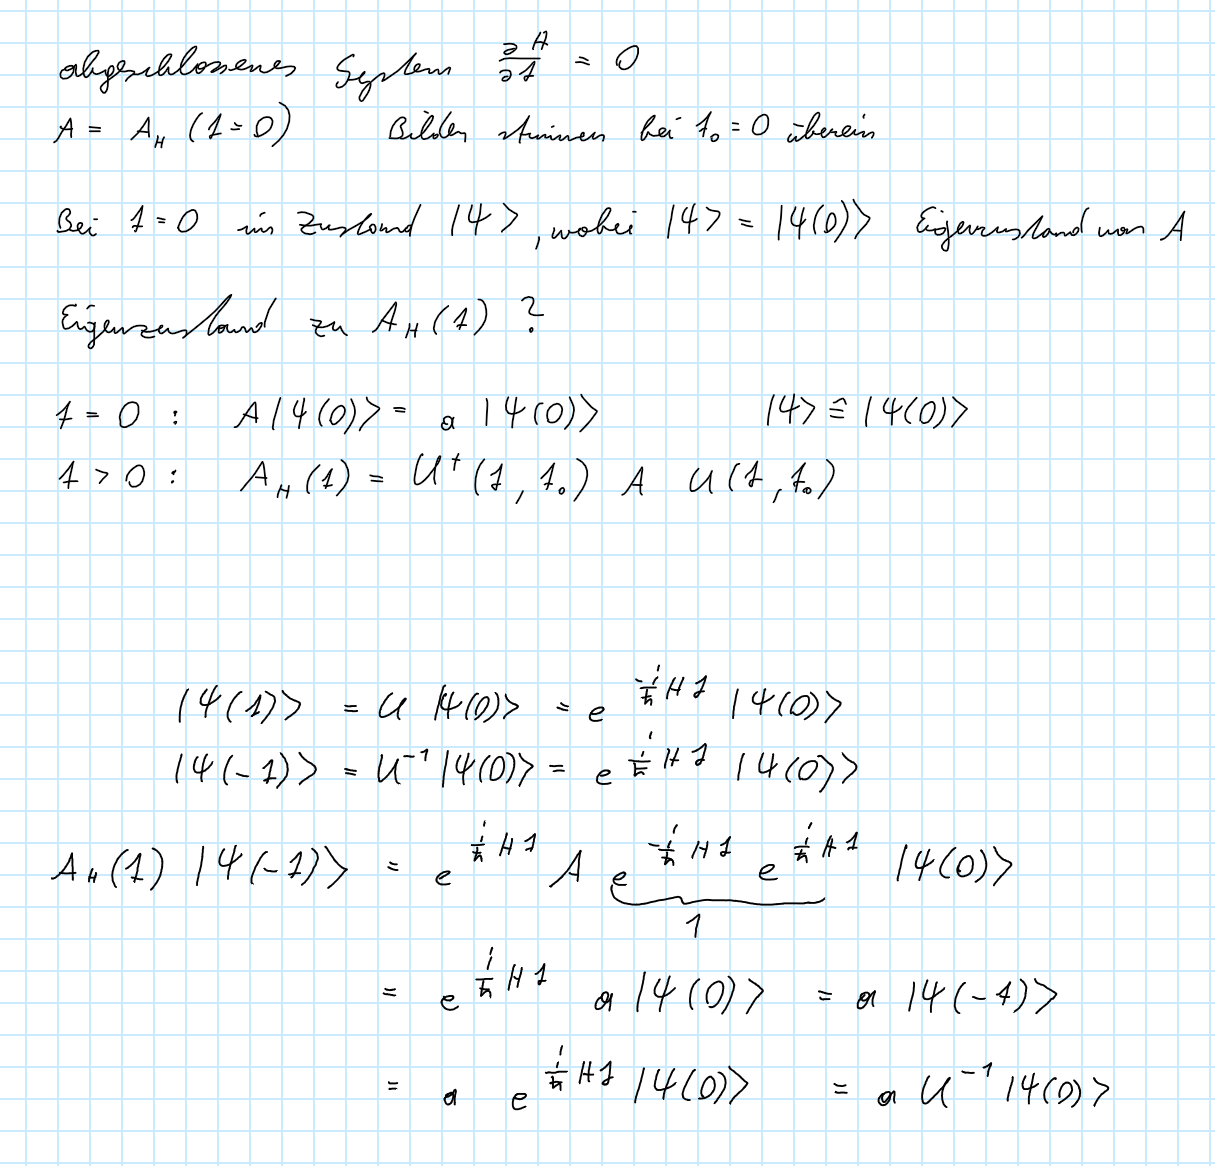 abgeschlossenes System ∂H/∂t = 0
A = A_H (t=0) Bilder stimmen bei t₀ = 0 überein
Bei t = 0 im Zustand |ψ>, wobei |ψ> = |ψ(0)> Eigenzustand von A
Eigenzustand zu A_H(t) ?
t = 0 : A|ψ(0)> = a |ψ(0)> |ψ> ≙ |ψ(0)>
t > 0 : A_H(t) = U†(t, t₀) A U(t, t₀)
|ψ(t)> = U |ψ(0)> = e^{-i/ħ H t} |ψ(0)>
|ψ(-t)> = U⁻¹ |ψ(0)> = e^{i/ħ H t} |ψ(0)>
A_H(t) |ψ(-t)> = e^{i/ħ H t} A e^{-i/ħ H t} e^{i/ħ H t} |ψ(0)>
1
= e^{i/ħ H t} a |ψ(0)> = a |ψ(-t)>
= a e^{i/ħ H t} |ψ(0)> = a U⁻¹ |ψ(0)>